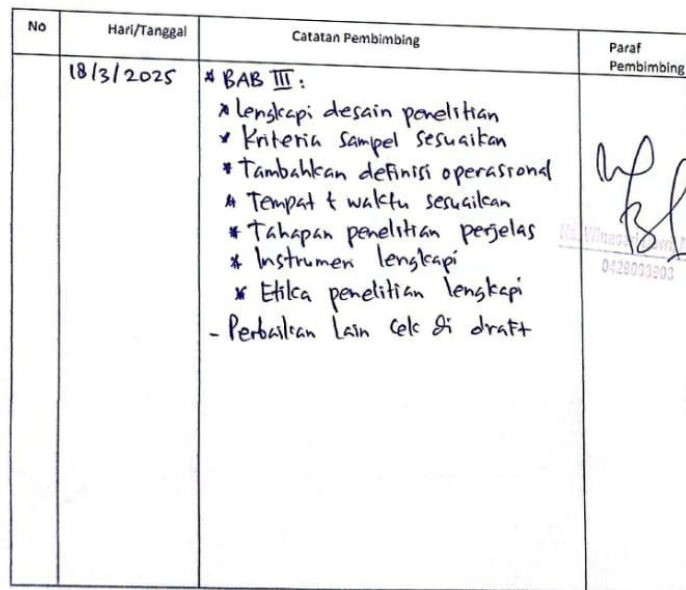 No
Hari/Tanggal
Catatan Pembimbing
Paraf
Pembimbing
18/3/2025
* BAB III :
* lengkapi desain penelitian
* Kriteria sampel sesuaikan
* Tambahkan definisi operasional
* Tempat & waktu sesuaikan
* Tahapan penelitian perjelas
* Instrumen lengkapi
* Etika penelitian lengkapi
- Perbaikan lain cek di draft